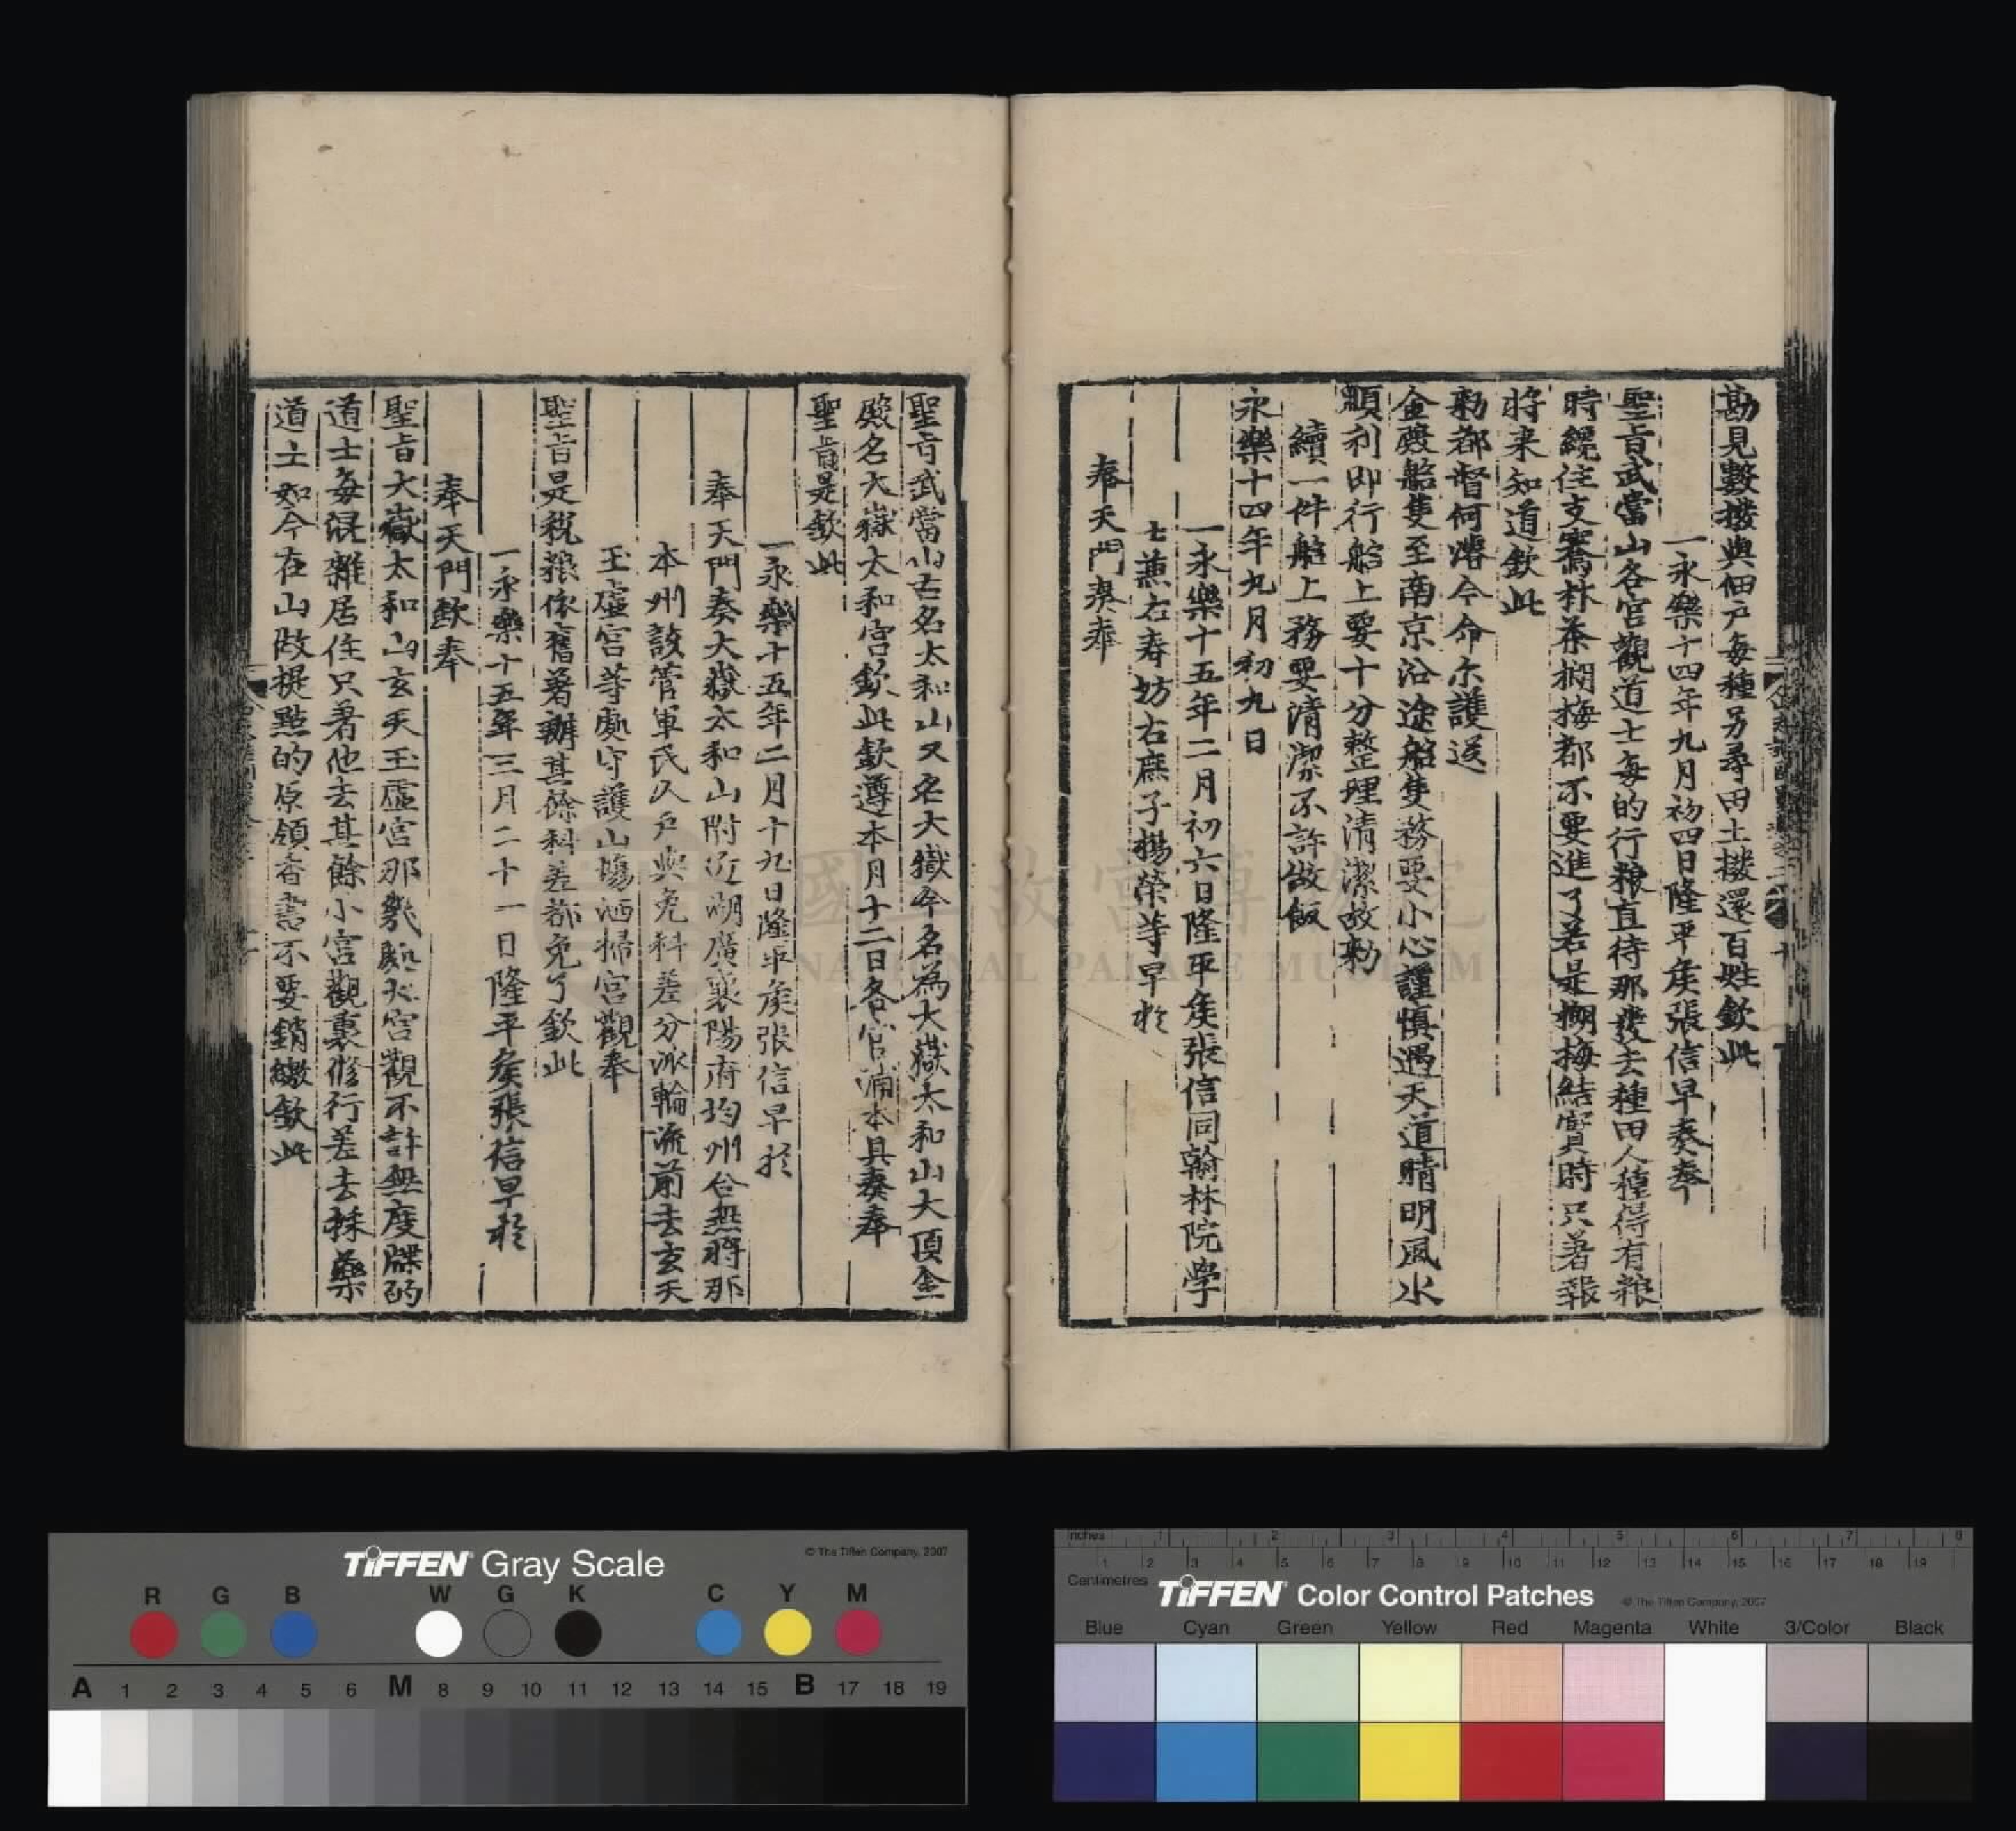 勘見數撥與佃戶每種另尋田土撥還百姓欽此
一永樂十四年九月初四日隆平矦張信早奏奉
聖旨武當山各宮觀道士每的行粮直待那幾去種田人種得有粮
時纔住支騫林茶榔梅都不要進了若是榔梅結實時只著報
將来知道欽此
勑都督何濬今命尓護送
金殿船隻至南京沿途船隻務要小心謹慎遇天道晴明風水
順利即行船上要十分整理清潔故勑
續一件船上務要清潔不許做飯
永樂十四年九月初九日
一永樂十五年二月初六日隆平矦張信同翰林院學
士兼右春坊右庶子楊榮等早於
奉天門奏奉
聖旨武當山古名太和山又名大嶽今名為大嶽太和山大頂金
殿名大嶽太和宮欽此欽遵本月十二日各官浦本具奏奉
聖旨是欽此
一永樂十五年二月十九日隆平矦張信早於
奉天門奏大嶽太和山附近湖廣襄陽府均州合無將那
本州該管軍民人戶與免科差分派輪流前去玄天
玉虛宮等處守護山場洒掃宮觀奉
聖旨是稅粮依舊著辦其餘科差都免了欽此
一永樂十五年三月二十一日隆平矦張信早於
奉天門欽奉
聖旨大嶽太和山玄天玉虛宮那幾處大宮觀不許無度牒的
道士每混雜居住只著他去其餘小宮觀裏修行差去採藥
道士如今在山做提點的原領香書不要銷繳欽此
國立故宮博物院
NATIONAL PALACE MUSEUM
TIFFEN Gray Scale
© The Tiffen Company, 2007
R G B W G K C Y M
A 1 2 3 4 5 6 M 8 9 10 11 12 13 14 15 B 17 18 19
Inches 1 2 3 4 5 6 7 8
1 2 3 4 5 6 7 8 9 10 11 12 13 14 15 16 17 18 19
Centimetres
TIFFEN Color Control Patches
© The Tiffen Company, 2007
Blue Cyan Green Yellow Red Magenta White 3/Color Black